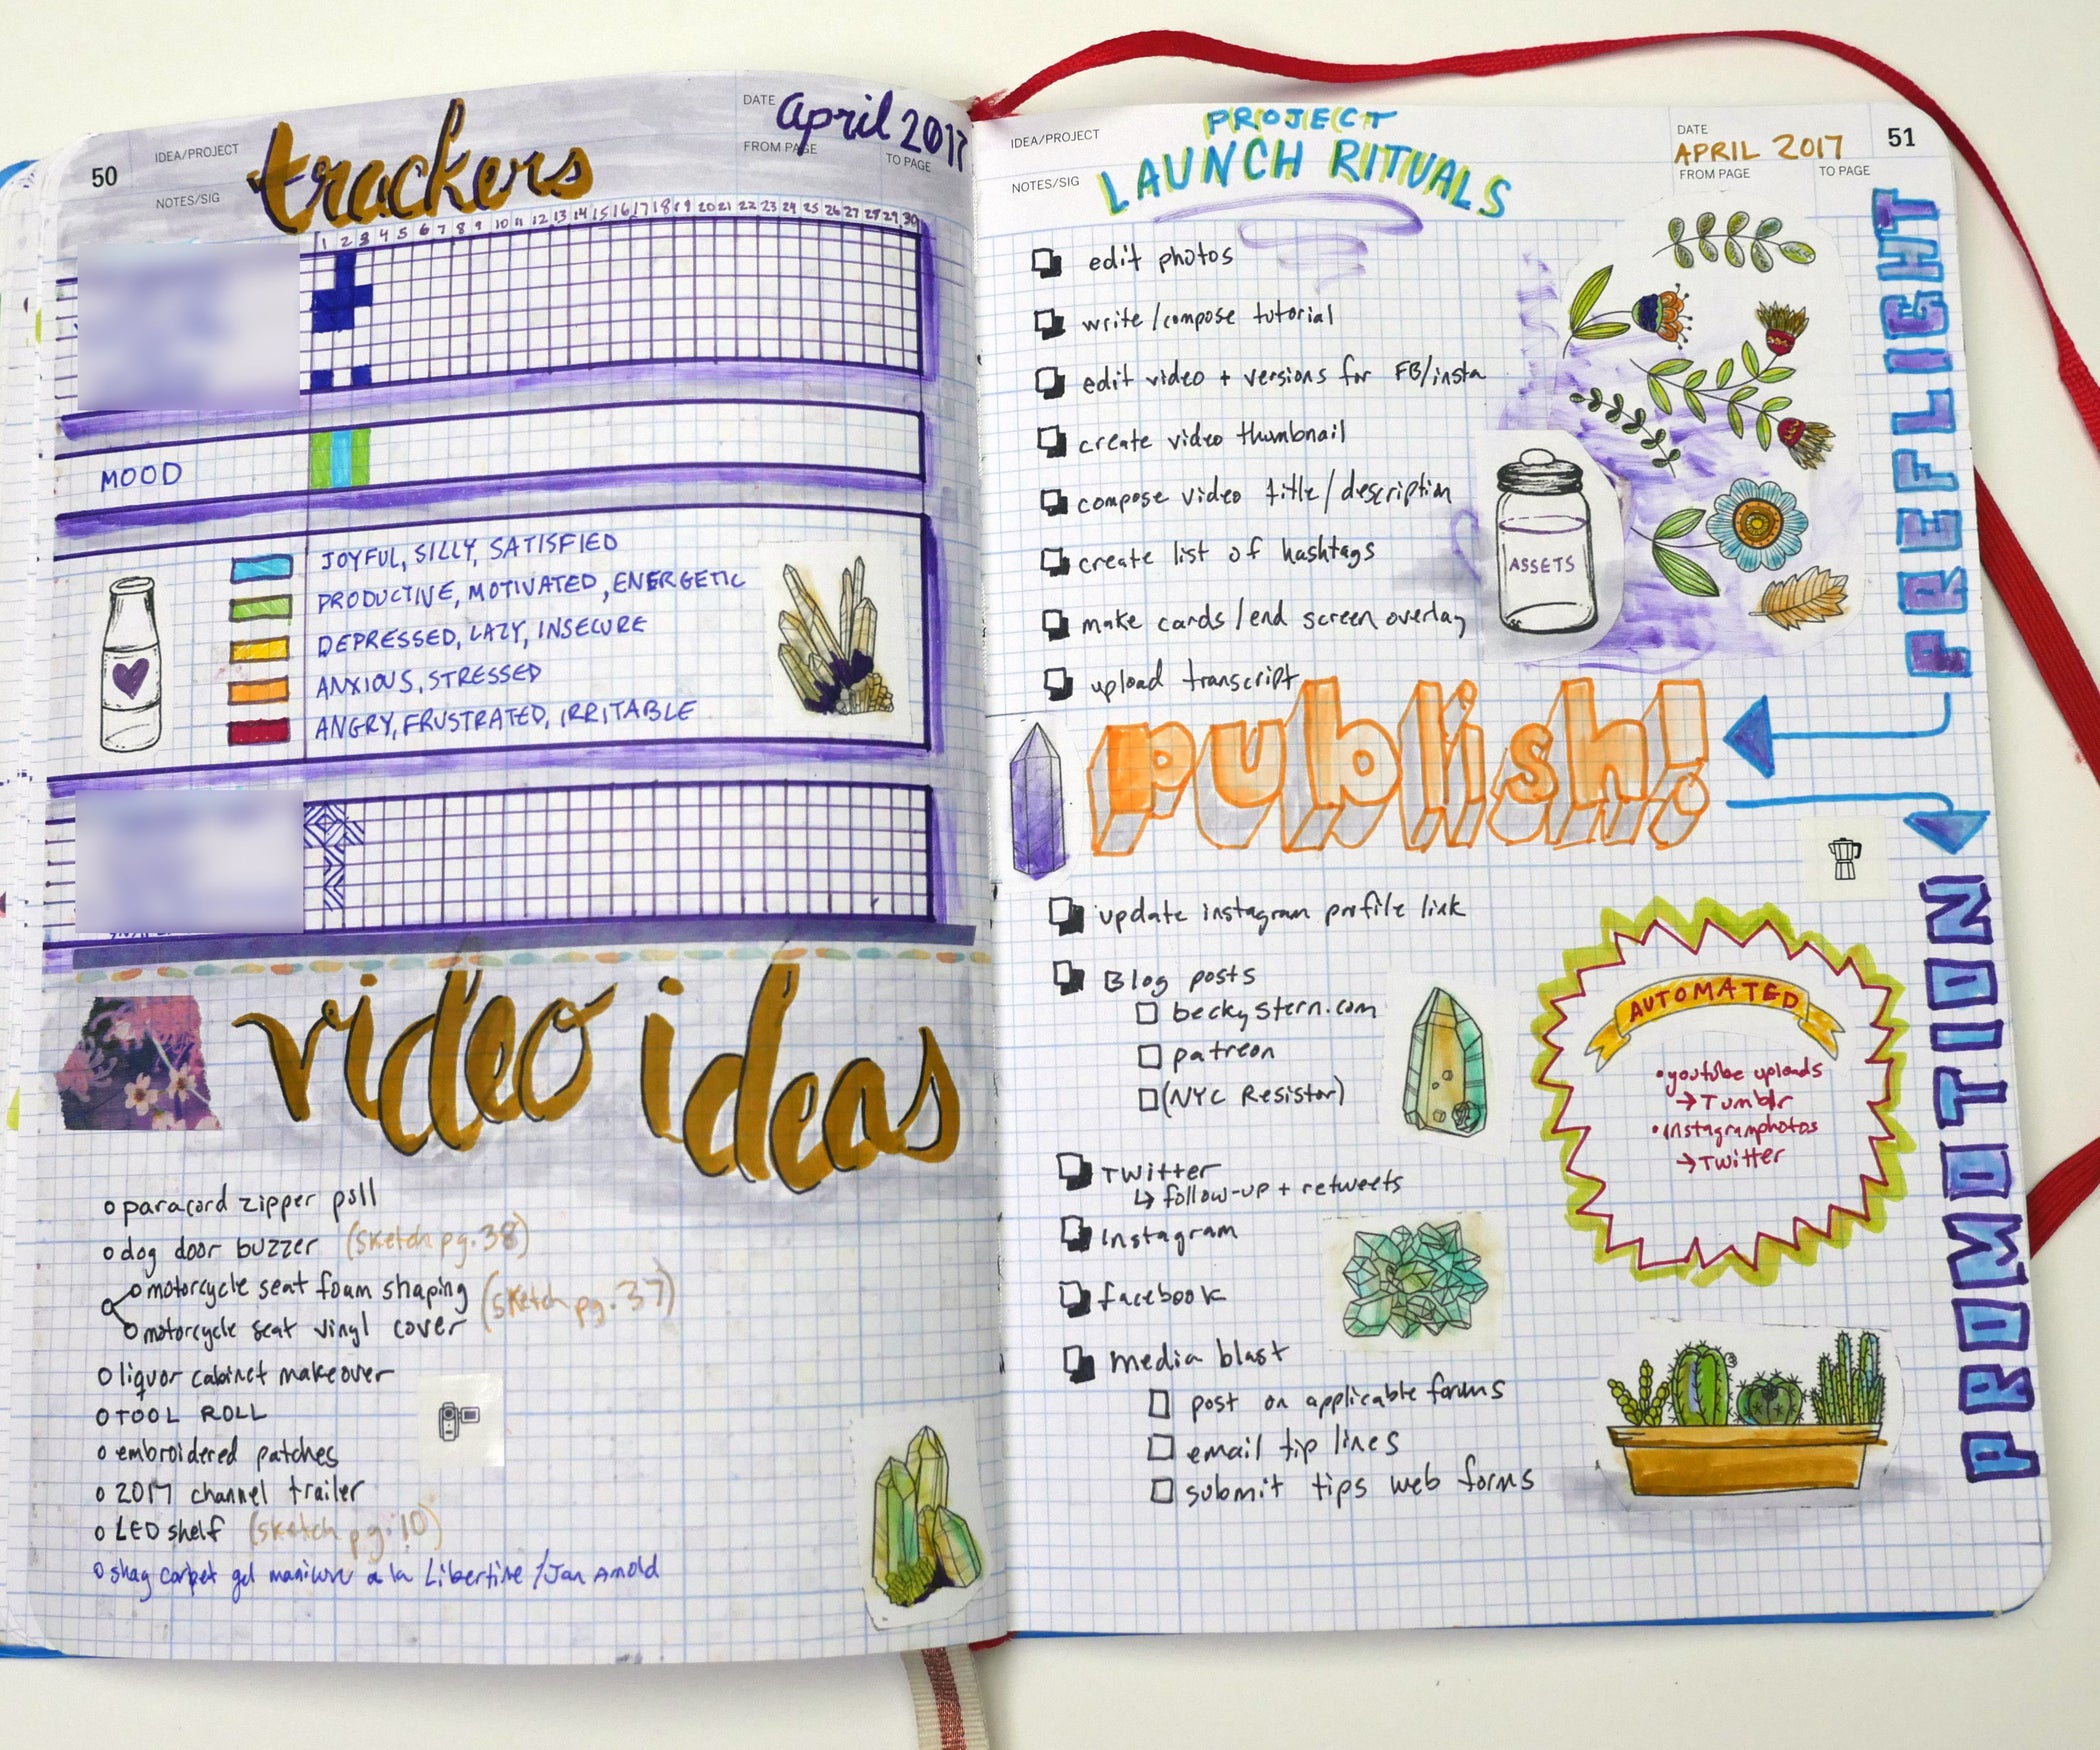 50
IDEA/PROJECT
NOTES/SIG
trackers
DATE
april 2017
FROM PAGE
TO PAGE
1 2 3 4 5 6 7 8 9 10 11 12 13 14 15 16 17 18 19 20 21 22 23 24 25 26 27 28 29 30
MOOD
JOYFUL, SILLY, SATISFIED
PRODUCTIVE, MOTIVATED, ENERGETIC
DEPRESSED, LAZY, INSECURE
ANXIOUS, STRESSED
ANGRY, FRUSTRATED, IRRITABLE
video ideas
paracord zipper pull
dog door buzzer (sketch pg. 38)
motorcycle seat foam shaping
motorcycle seat vinyl cover
(sketch pg. 37)
liquor cabinet makeover
TOOL ROLL
embroidered patches
2017 channel trailer
LED shelf (sketch pg. 10)
shag carpet gel manicure a la Libertine / Jan Arnold
IDEA/PROJECT
NOTES/SIG
PROJECT
LAUNCH RITUALS
DATE
APRIL 2017
FROM PAGE
TO PAGE
51
edit photos
write/compose tutorial
edit video + versions for FB/insta
create video thumbnail
compose video title/description
create list of hashtags
make cards/end screen overlay
upload transcript
ASSETS
PREFLIGHT
publish!
update instagram profile link
Blog posts
beckystern.com
patreon
(NYC Resistor)
TWitter
↳ follow-up + retweets
Instagram
facebook
media blast
post on applicable forums
email tip lines
submit tips web forms
AUTOMATED
• youtube uploads
→ Tumblr
• instagram photos
→ Twitter
PROMOTION